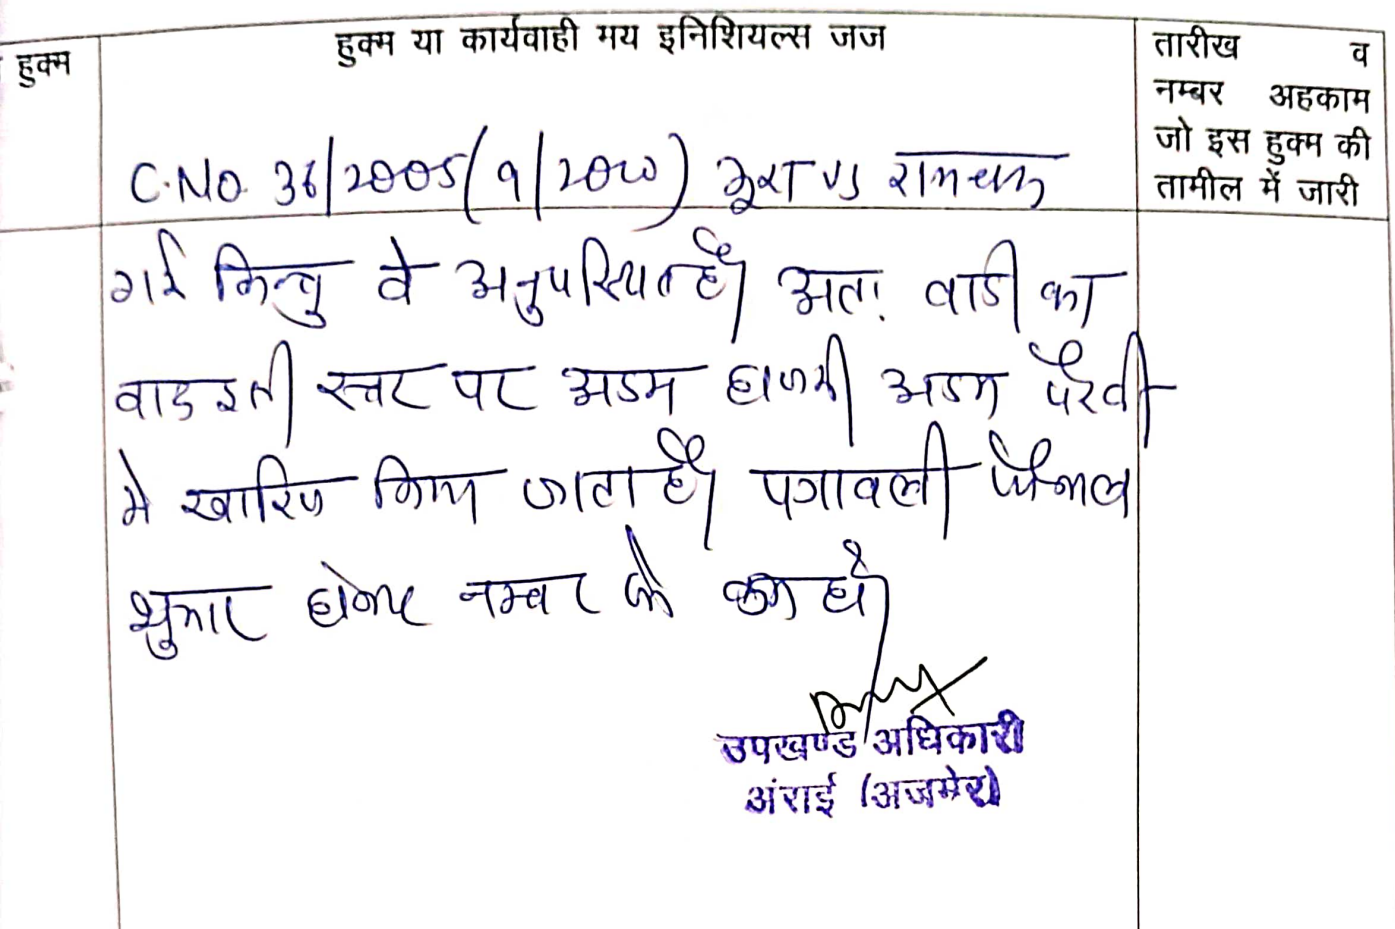 हुक्म
हुक्म या कार्यवाही मय इनिशियल्स जज
तारीख व
नम्बर अहकाम
जो इस हुक्म की
तामील में जारी
C.No. 36/2005 (9/2010) भूरा vs रामचन्द्र
गई किन्तु वे अनुपस्थित है। अतः वादी का
वाद इसी स्तर पर अदम हाजरी अदम पैरवी
मे खारिज किया जाता है। पत्रावली फैसल
शुमार होकर नम्बर से कम हो।
उपखण्ड अधिकारी
अंराई (अजमेर)